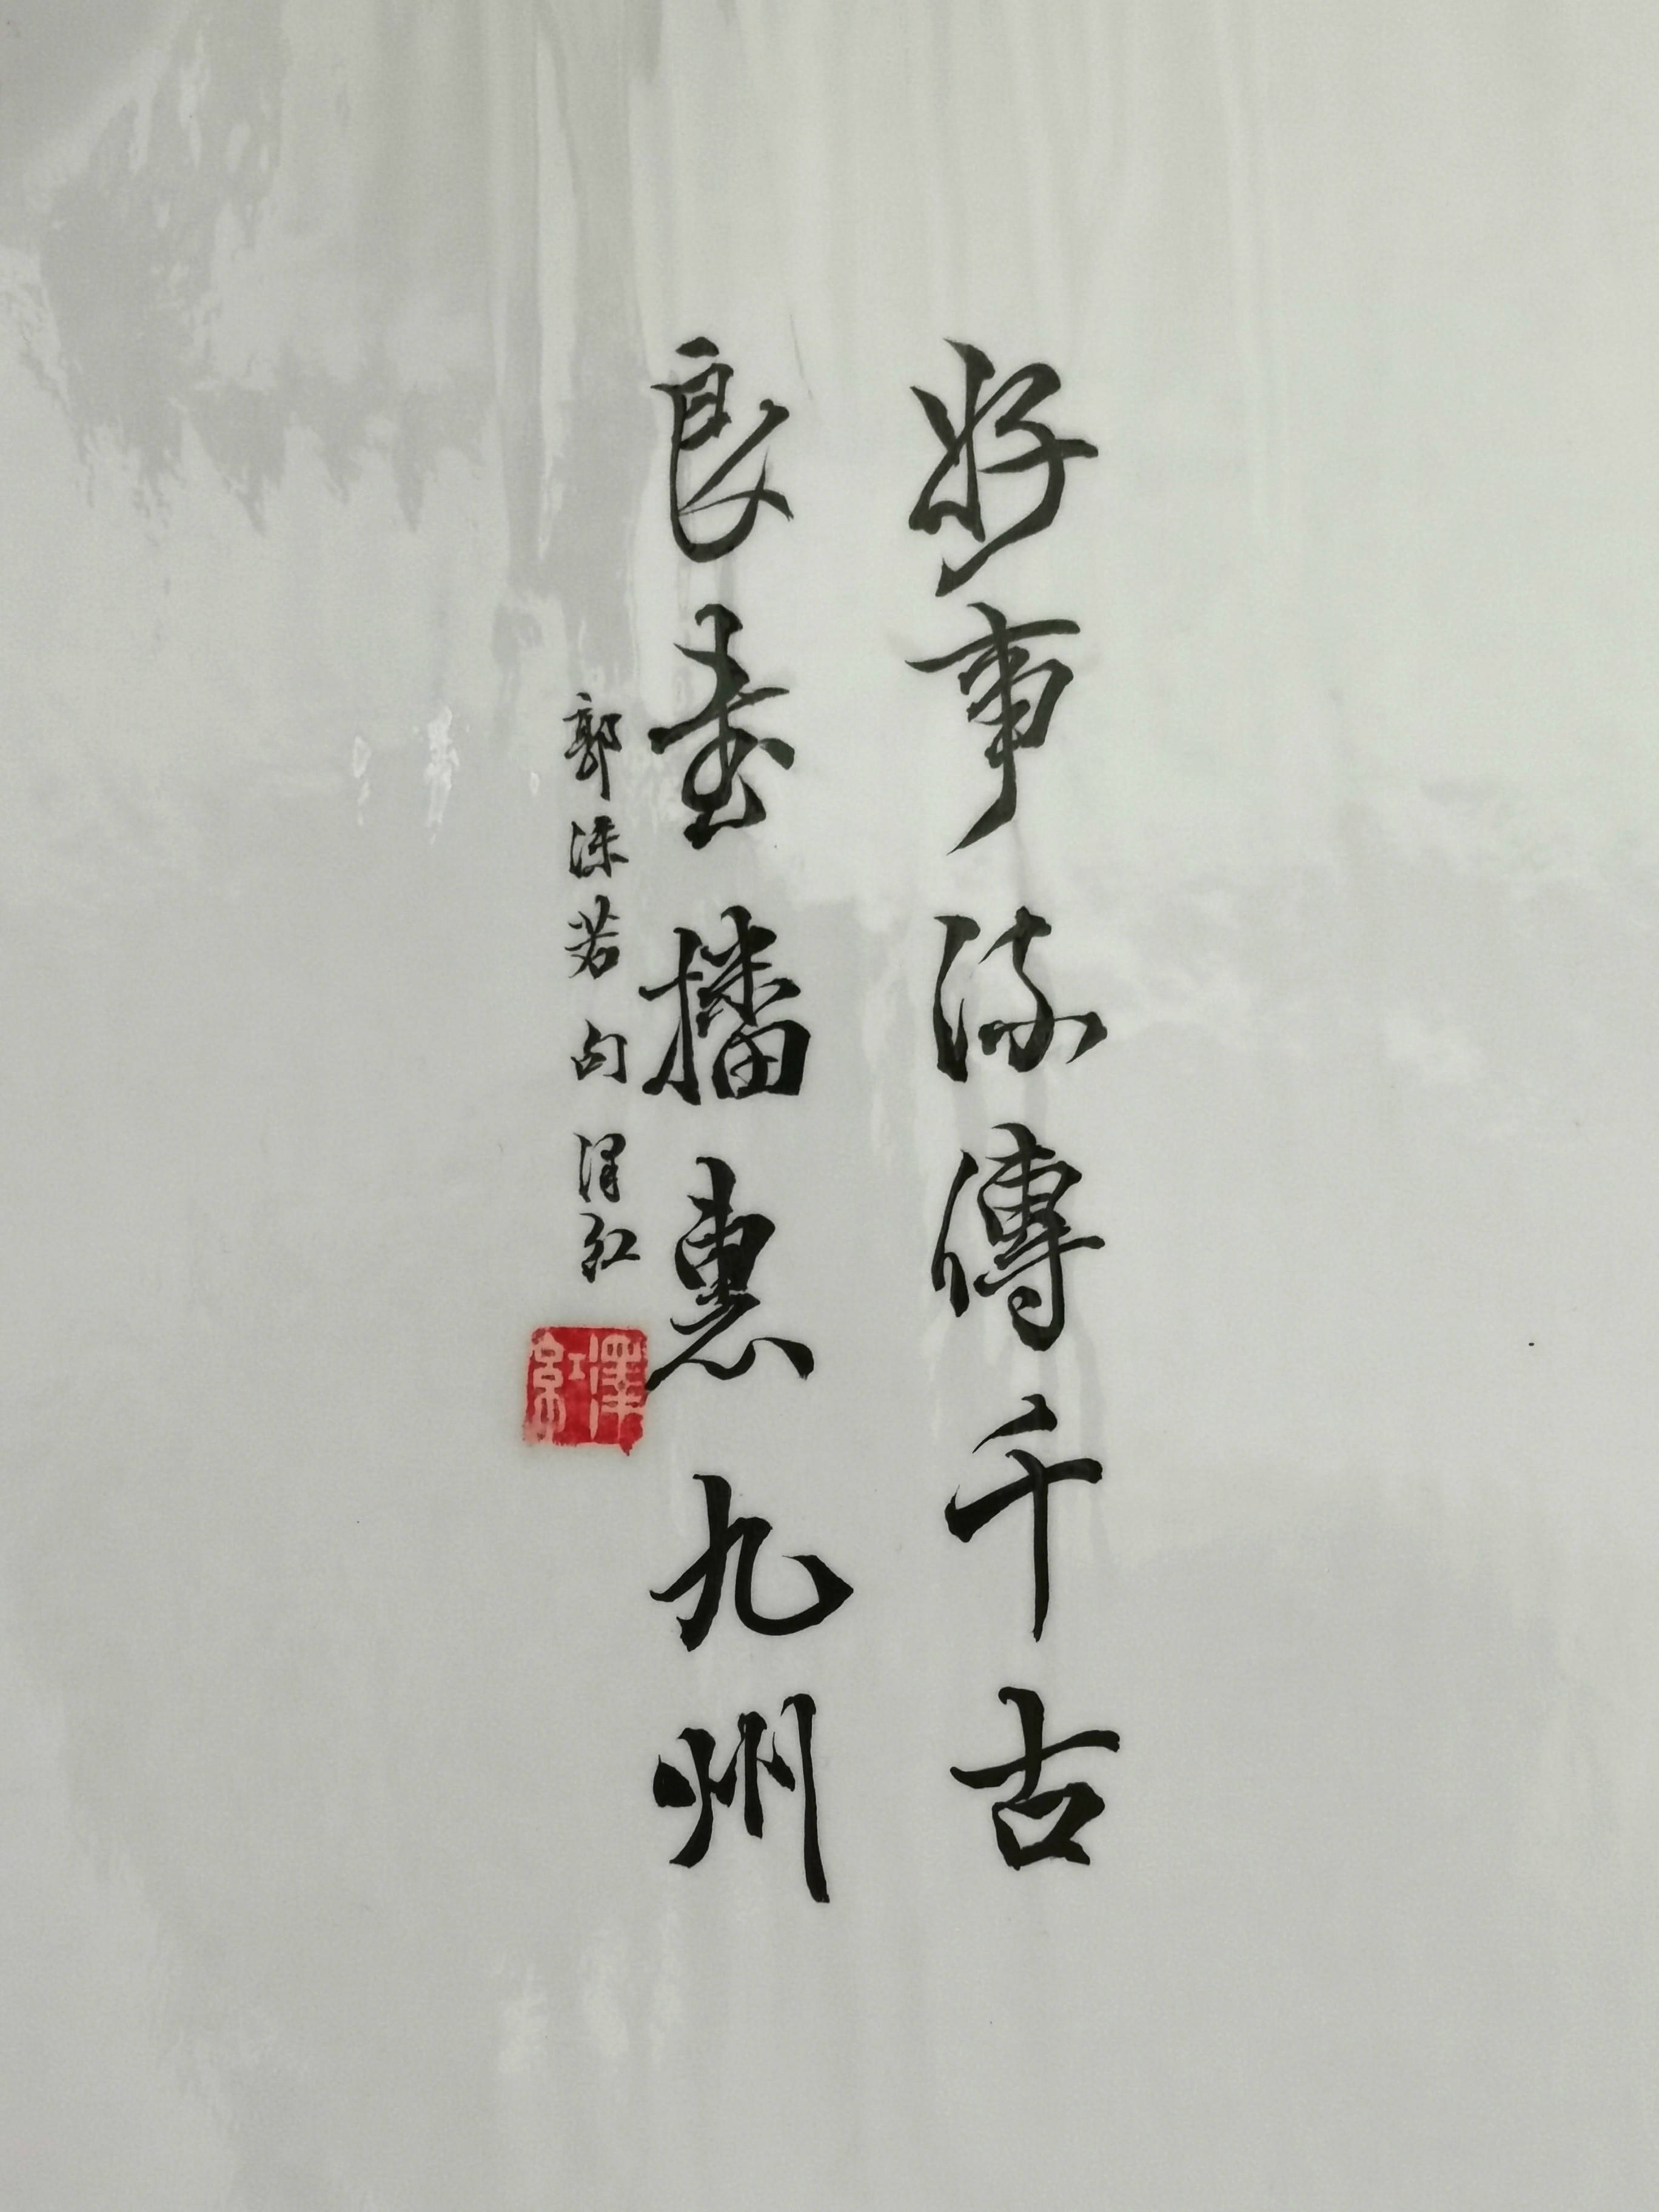 好事流傳千古
良書播惠九州
郭沫若句澤红
澤紅